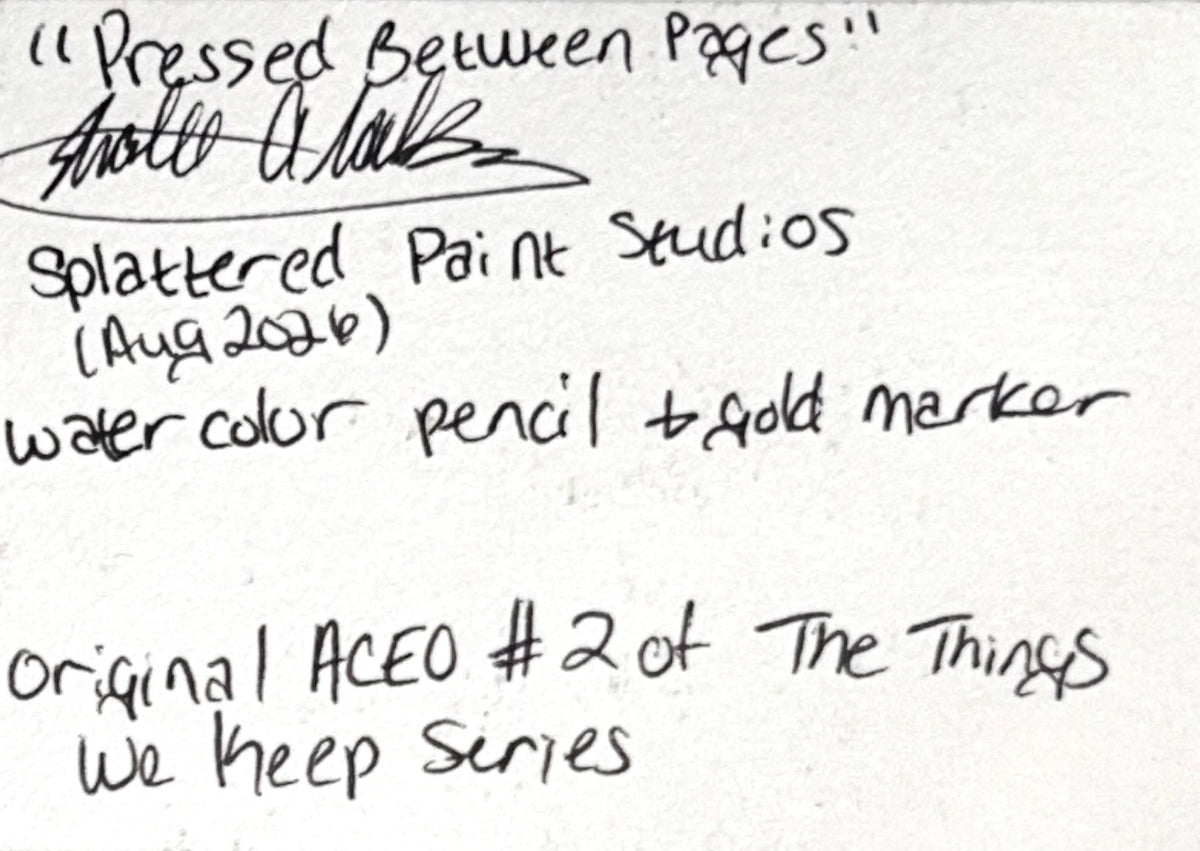 "Pressed Between Pages"
Splattered Paint Studios
(Aug 2026)
watercolor pencil + gold marker
Original ACEO #2 of The Things
We Keep Series